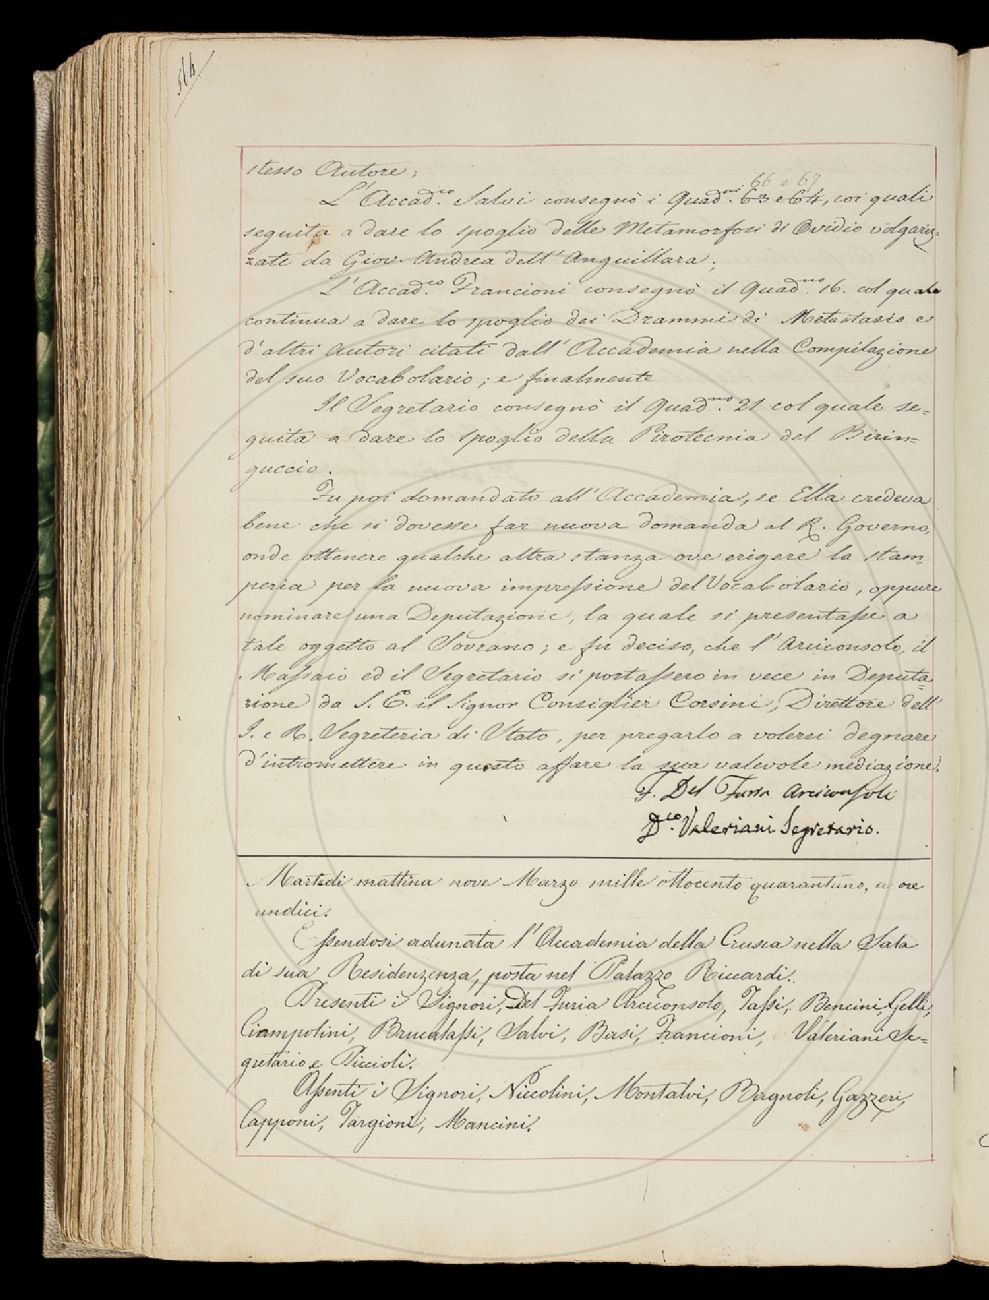 514
stesso Autore;
66 e 67
L'Accad.co Salvi consegnò i Quad.ni 63 e 64, coi quali
seguita a dare lo spoglio delle Metamorfosi di Ovidio volgariz=
zate da Giov. Andrea dell'Anguillara;
L'Accad.co Francioni consegnò il Quad.no 16. col quale
continua a dare lo spoglio dei Drammi di Metastasio e
d'altri autori citati dall'Accademia nella Compilazione
del suo Vocabolario; e finalmente
Il Segretario consegnò il Quad.no 21 col quale se=
guita a dare lo spoglio della Pirotecnia del Birin=
guccio.
Fu poi domandato all'Accademia, se Ella credeva
bene che si dovesse far nuova domanda al R. Governo,
onde ottenere qualche altra stanza ove erigere la stam=
peria per la nuova impressione del Vocabolario, oppure
nominare una Deputazione, la quale si presentasse a
tale oggetto al Sovrano; e fu deciso, che l'Arciconsolo, il
Massaio ed il Segretario si portassero in vece in Deputa=
zione da S. E. il Signor Consiglier Corsini, Direttore dell'
I. e R. Segreteria di Stato, per pregarlo a volersi degnare
d'intromettere in questo affare la sua valevole mediazione.
F. Del Furia Arciconsolo
D.co Valeriani Segretario.
Martedì mattina nove Marzo mille ottocento quarantuno, a ore
undici.
Essendosi adunata l'Accademia della Crusca nella Sala
di sua Residenzinza, posta nel Palazzo Riccardi.
Presenti i Signori, Del Furia Arciconsolo, Tassi, Bencini, Gelli,
Ciampolini, Brucalassi, Salvi, Barsi, Francioni, Valeriani Se=
gretario e Piccioli.
Assenti i Signori, Niccolini, Montalvi, Bagnoli, Gazzeri,
Capponi, Targioni, Mancini.